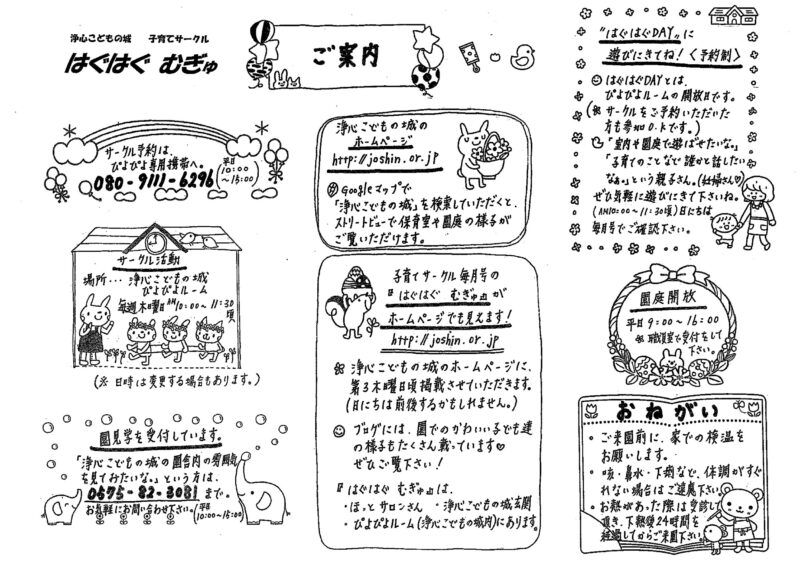 浄心こどもの城　子育てサークル
はぐはぐ むぎゅ
ご案内
サークル予約は、
ぴよぴよ専用携帯へ。
080-9111-6296
(平日
10:00
～15:00)
サークル活動
場所…浄心こどもの城
ぴよぴよルーム
毎週木曜日AM10:00～11:30
頃
(※日時は変更する場合もあります。)
園見学を受付しています。
「浄心こどもの城の園舎内の雰囲気
を見てみたいな。」という方は、
0575-82-3081 まで。
お気軽にお問い合わせ下さい。(平日
10:00～16:00)
浄心こどもの城の
ホームページ
http://joshin.or.jp
Googleマップで
「浄心こどもの城」を検索していただくと、
ストリートビューで保育室や園庭の様子が
ご覧いただけます。
子育てサークル毎月号の
『はぐはぐ むぎゅ』が
ホームページでも見えます!
http://joshin.or.jp
浄心こどもの城のホームページに、
第3木曜日頃掲載させていただきます。
(日にちは前後するかもしれません。)
ブログには、園でのかわいい子ども達
の様子もたくさん載っています♡
ぜひご覧下さい!
『はぐはぐ むぎゅ』は、
・ほっとサロンさん ・浄心こどもの城玄関
・ぴよぴよルーム(浄心こどもの城内)にあります。
"はぐはぐDAY"に
遊びにきてね!〈予約制〉
はぐはぐDAYとは、
ぴよぴよルームの開放日です。
(※サークルをご予約いただいた
方も参加O.Kです。)
「室内や園庭で遊ばせたいな。」
「子育てのことなど誰かと話したい
なぁ。」という親子さん。(妊婦さん♡)
ぜひ気軽に遊びにきて下さいね。
(AM10:00～11:30頃)日にちは
毎月号でご確認下さい。
園庭開放
平日9:00～16:00
※職員室で受付をして
下さい。
おねがい
・ご来園前に、家での検温を
お願いします。
・咳・鼻水・下痢など、体調がすぐ
れない場合はご遠慮下さい。
・お熱があった際は受診して
頂き、下熱後24時間を
経過してからご来園下さい。